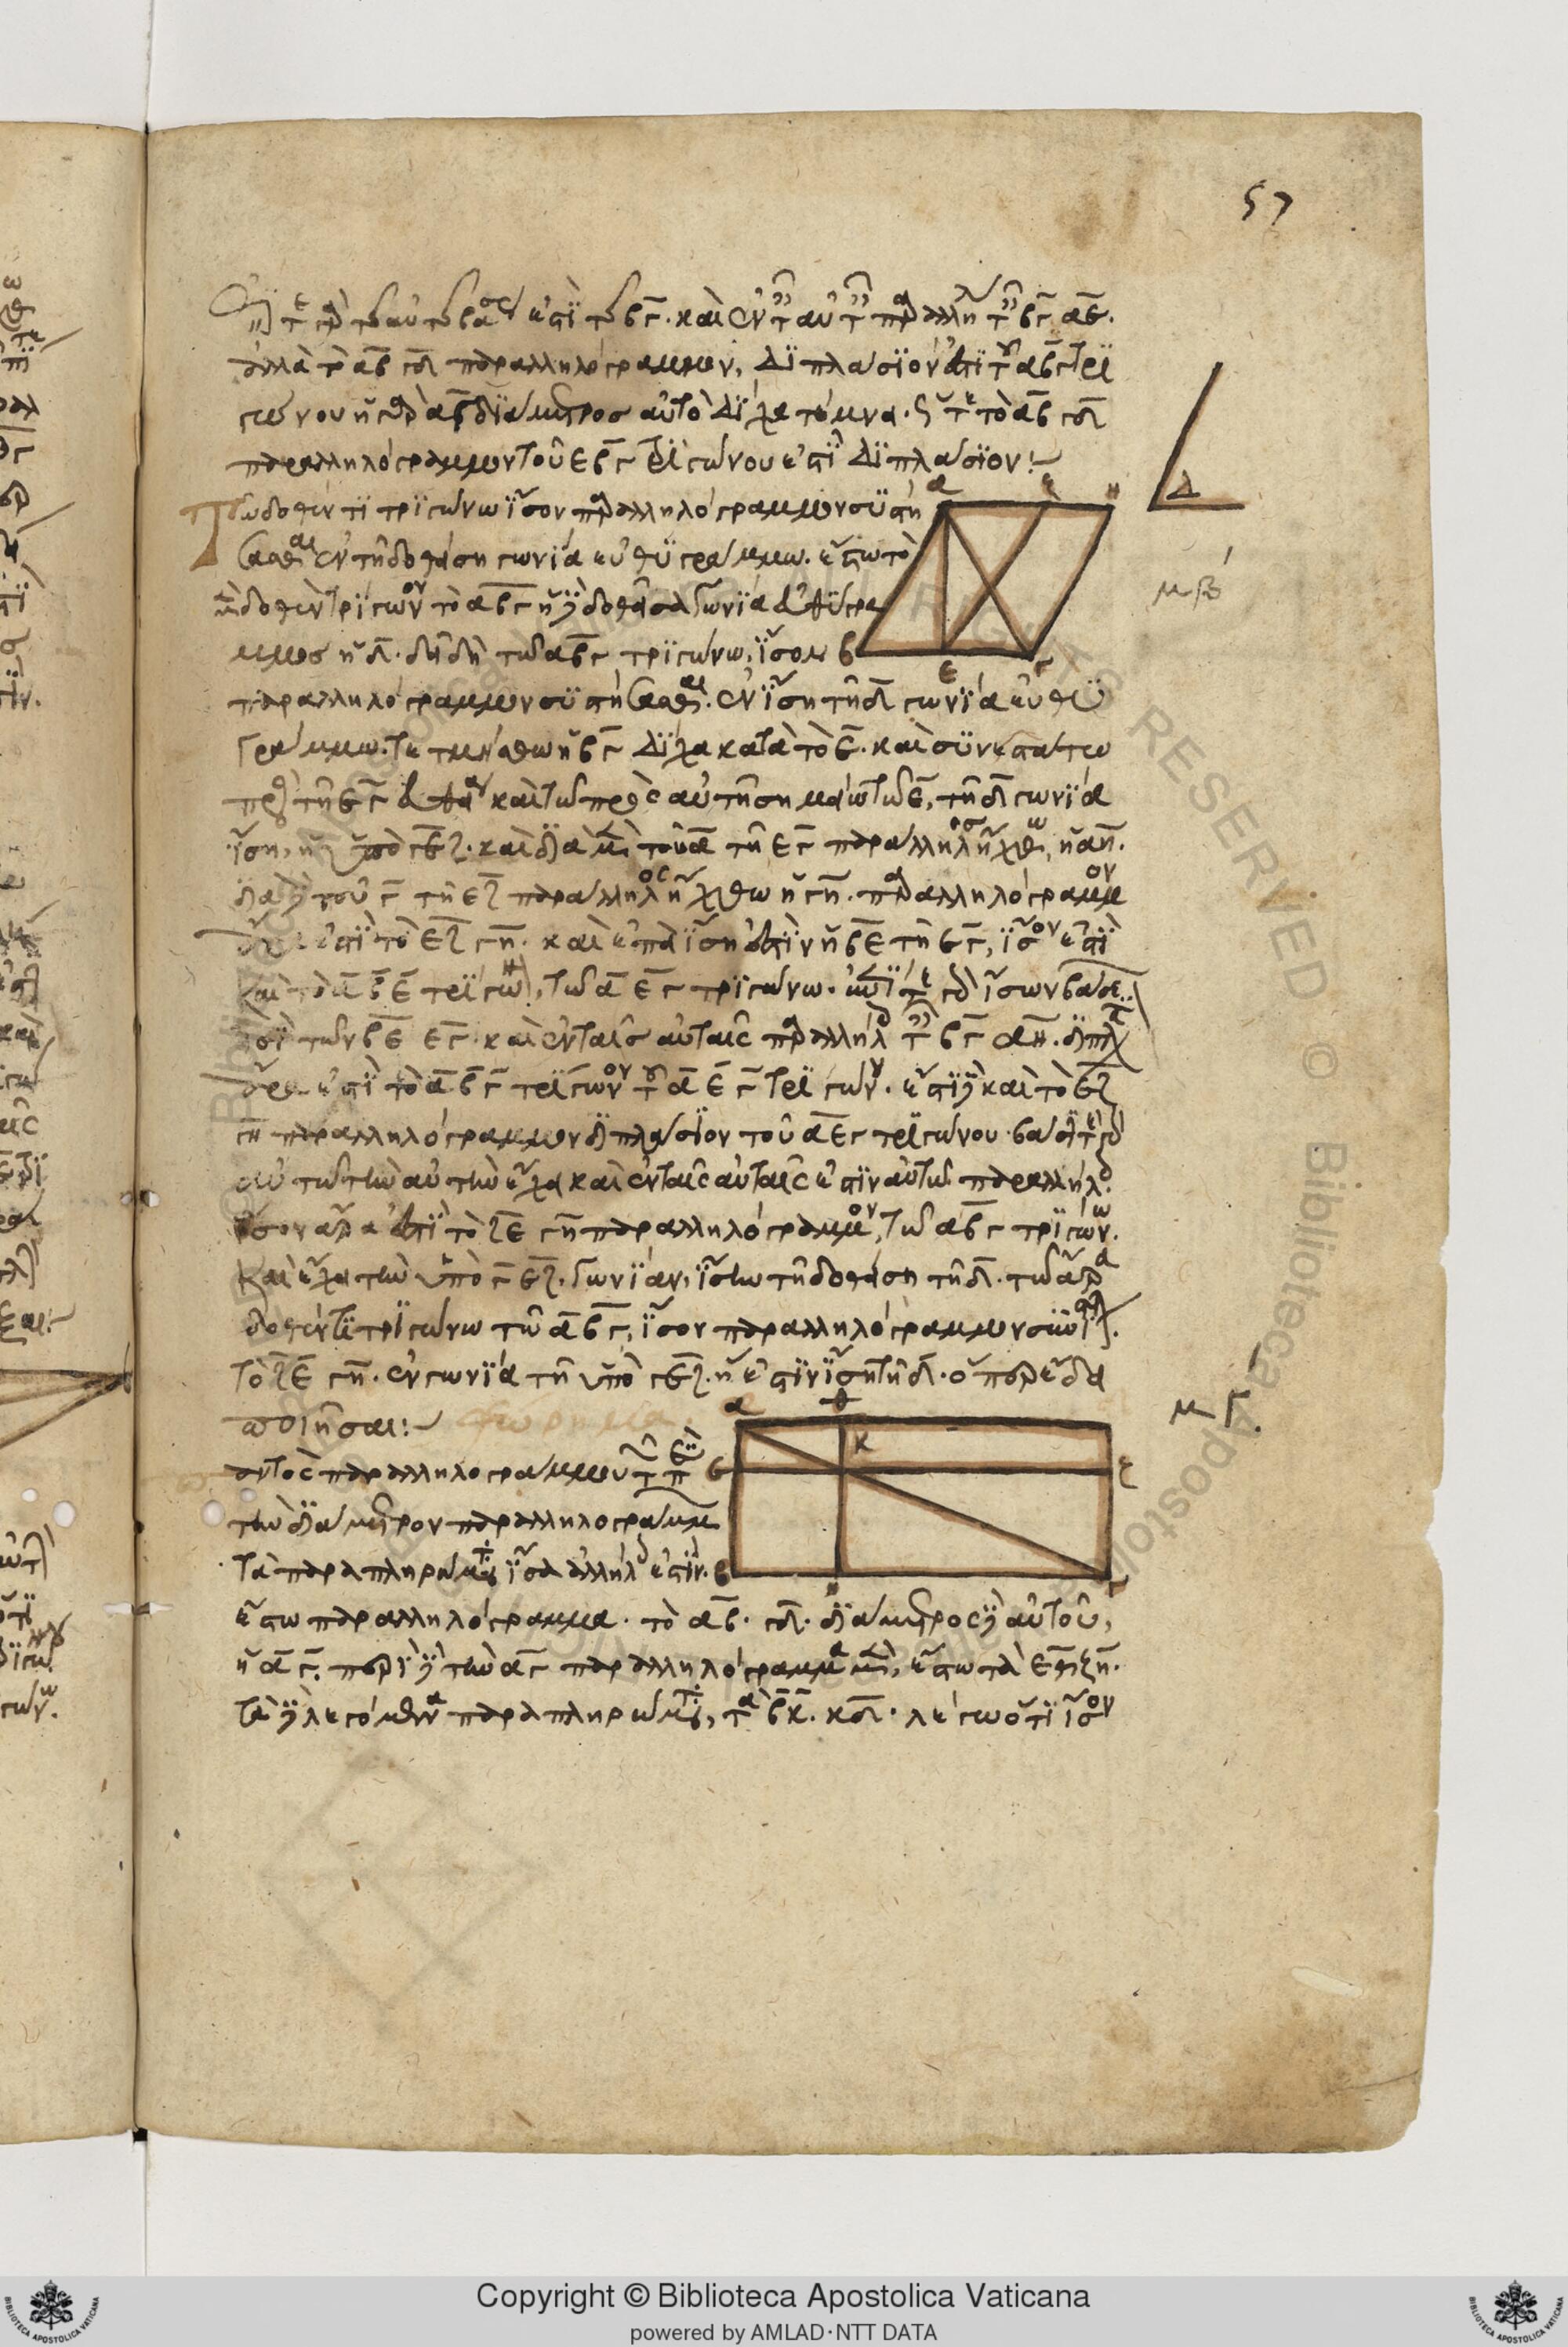 57
ἐπί τε γὰρ τῆς αὐτῆς βάσεώς ἐστι τῆς βγ. καὶ ἐν ταῖς αὐταῖς παραλλήλοις ταῖς βγ αε.
ἀλλὰ τὸ αβγδ παραλληλόγραμμον, διπλάσιόν ἐστι τοῦ αβγ τρι
γώνου ἡ γὰρ αγ διάμετρος αὐτὸ δίχα τέμνει. ὥστε τὸ αβγδ
παραλληλόγραμμον τοῦ εβγ τριγώνου ἐστὶ διπλάσιον:
Τῶ δοθέντι τριγώνω ἴσον παραλληλόγραμμον συστή
σασθαι ἐν τῆ δοθείση γωνία εὐθυγράμμω. ἔστω τὸ
μὲν δοθὲν τρίγωνον τὸ αβγ ἡ δὲ δοθεῖσα γωνία εὐθύγρα
μμος ἡ δ. δεῖ δὴ τῶ αβγ τριγώνω, ἴσον
παραλληλόγραμμον συστήσασθαι. ἐν ἴση τῆ δ γωνία εὐθυ
γράμμω. τετμήσθω ἡ βγ δίχα κατὰ τὸ ε. καὶ συνεστάτω
πρὸς τῆ εγ εὐθεία καὶ τῶ πρὸς αὐτῆ σημείω τῶ ε, τῆ δ γωνία
ἴση, ἡ ὑπὸ γεζ. καὶ διὰ μὲν τοῦ α τῆ εγ παράλληλος ἤχθω, ἡ αη.
διὰ δὲ τοῦ γ τῆ εζ παράλληλος ἤχθω ἡ γη. παραλληλόγραμμον
ἄρα ἐστὶ τὸ εζγη. καὶ ἐπεὶ ἴση ἐστὶν ἡ βε τῆ εγ, ἴσον ἐστὶ
καὶ τὸ αβε τρίγωνον, τῶ αεγ τριγώνω. ἐπί τε γὰρ ἴσων βάσε
τῶν βε εγ. καὶ ἐν ταῖς αὐταῖς παραλλήλοις ταῖς βγ αη.
ἄρα ἐστὶ τὸ αβγ τρίγωνον τοῦ αεγ τριγώνου. ἔστι δὲ καὶ τὸ εζ
γη παραλληλόγραμμον διπλάσιον τοῦ αεγ τριγώνου. βάσιν τε γὰρ
αὐτῶ τὴν αὐτὴν ἔχει καὶ ἐν ταῖς αὐταῖς ἐστὶν αὐτῶ παραλλήλοις.
ἴσον ἄρα ἐστὶ τὸ ζεγη παραλληλόγραμμον, τῶ αβγ τριγώνω.
καὶ ἔχει τὴν ὑπὸ γεζ. γωνίαν, ἴσην τῆ δοθείση τῆ δ. τῶ ἄρα
δοθέντι τριγώνω τῶ αβγ, ἴσον παραλληλόγραμμον συνίσταται.
τὸ ζεγη. ἐν γωνία τῆ ὑπὸ γεζ. ἥ ἐστὶν ἴση τῆ δ. ὅπερ ἔδει
ποιῆσαι:
παντὸς παραλληλογράμμου τῶν περὶ
τὴν διάμετρον παραλληλογράμμων
τὰ παραπληρώματα ἴσα ἀλλήλοις ἐστίν.
ἔστω παραλληλόγραμμον. τὸ αβ. γδ. διάμετρος δὲ αὐτοῦ,
ἡ αγ. περὶ δὲ τὴν αγ παραλληλόγραμμα μὲν, ἔστω τὰ εθζη.
τὰ δὲ λεγόμενα παραπληρώματα, τὰ βκ. κδ. λέγω ὅτι ἴσον
α
ζ
η
β
ε
γ
Δ
μβ
μγ
α
θ
κ
ε
ζ
β
η
γ
Copyright © Biblioteca Apostolica Vaticana
powered by AMLAD·NTT DATA